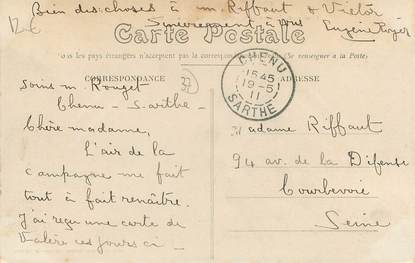 12€
Bien des choses à m. Riffaut & Victor
Sincèrement à
Eugène
Carte Postale
ous les pays étrangers n'acceptent pas la correspondance (Se renseigner à la Poste)
CORRESPONDANCE
ADRESSE
CHENU
15 45
19-5
11
SARTHE
soins m. Rouget
Chenu - Sarthe -
Chère madame,
L'air de la
campagne me fait
tout à fait renaître.
J'ai reçu une carte de
Valère ces jours ci -
Madame Riffaut
94 av. de la Défense
Courbevoie
Seine